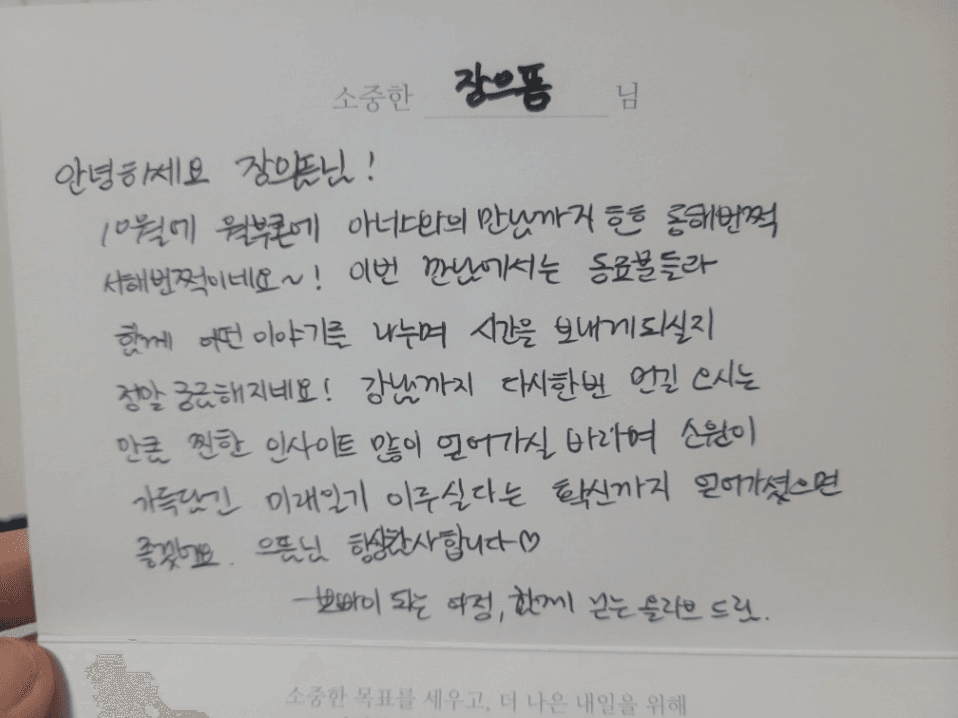 소중한 장으뜸 님
안녕하세요 장으뜸님!
10월에 월부콘에 아너스와의 만남까지 동해번쩍
서해번쩍이네요~! 이번 만남에서는 동료분들과
함께 어떤 이야기를 나누며 시간을 보내게되실지
정말 궁금해지네요! 강남까지 다시한번 먼길 오시는
만큼 찐한 인사이트 많이 얻어가실 바라며 소원이
가득담긴 미래일기 이루실다는 확신까지 얻어가셨으면
좋겠어요. 으뜸님 항상감사합니다♡
되는 여정, 함께 걷는 드림.
소중한 목표를 세우고, 더 나은 내일을 위해